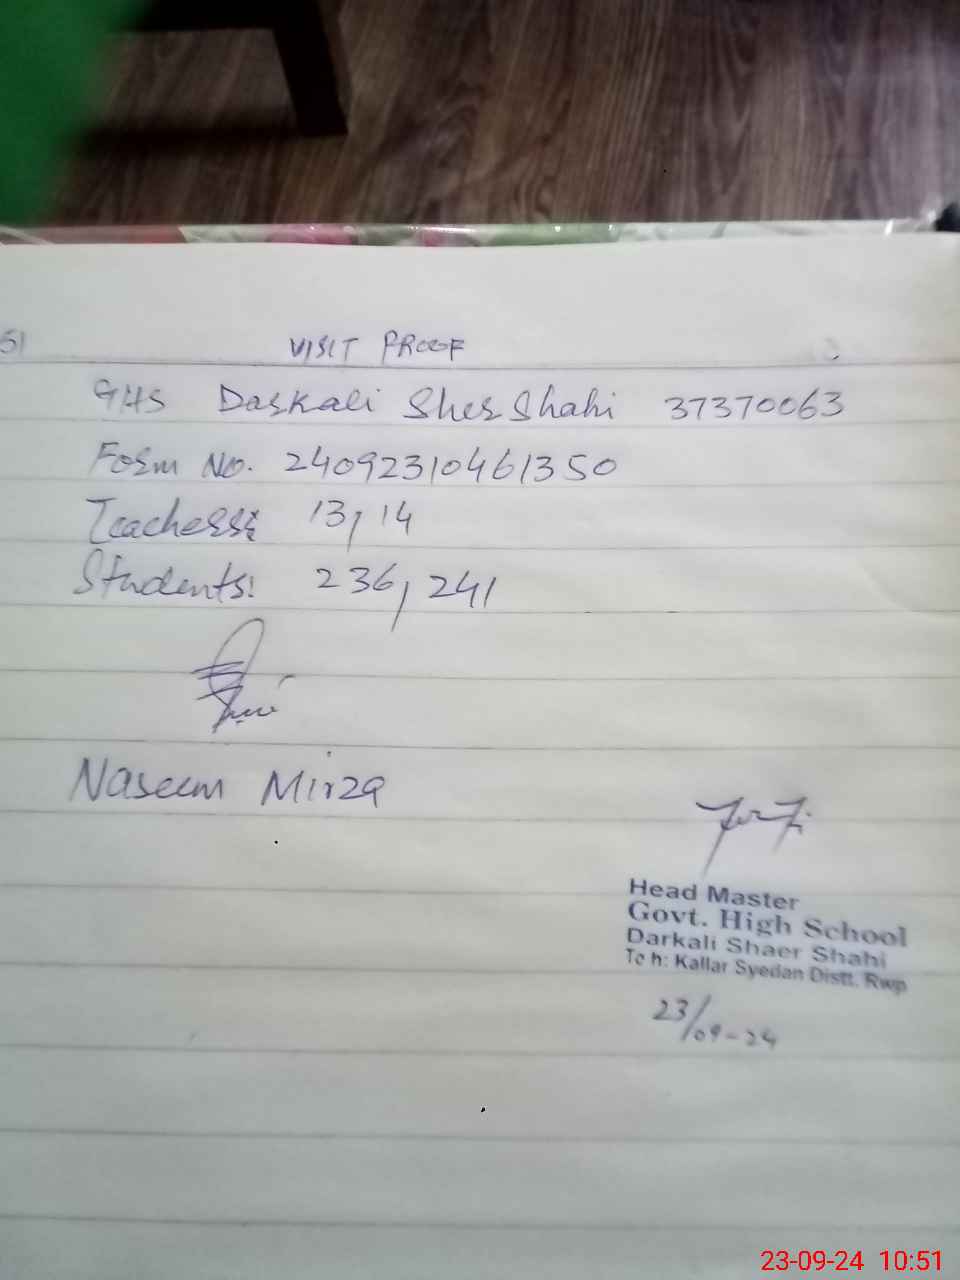 51
VISIT PROOF
GHS Darkali Sher Shahi 37370063
Form No. 24092310461350
Teachers: 13, 14
Students: 236, 241
Naseem Mirza
Head Master
Govt. High School
Darkali Shaer Shahi
Teh: Kallar Syedan Distt. Rwp
23/09-24
23-09-24 10:51